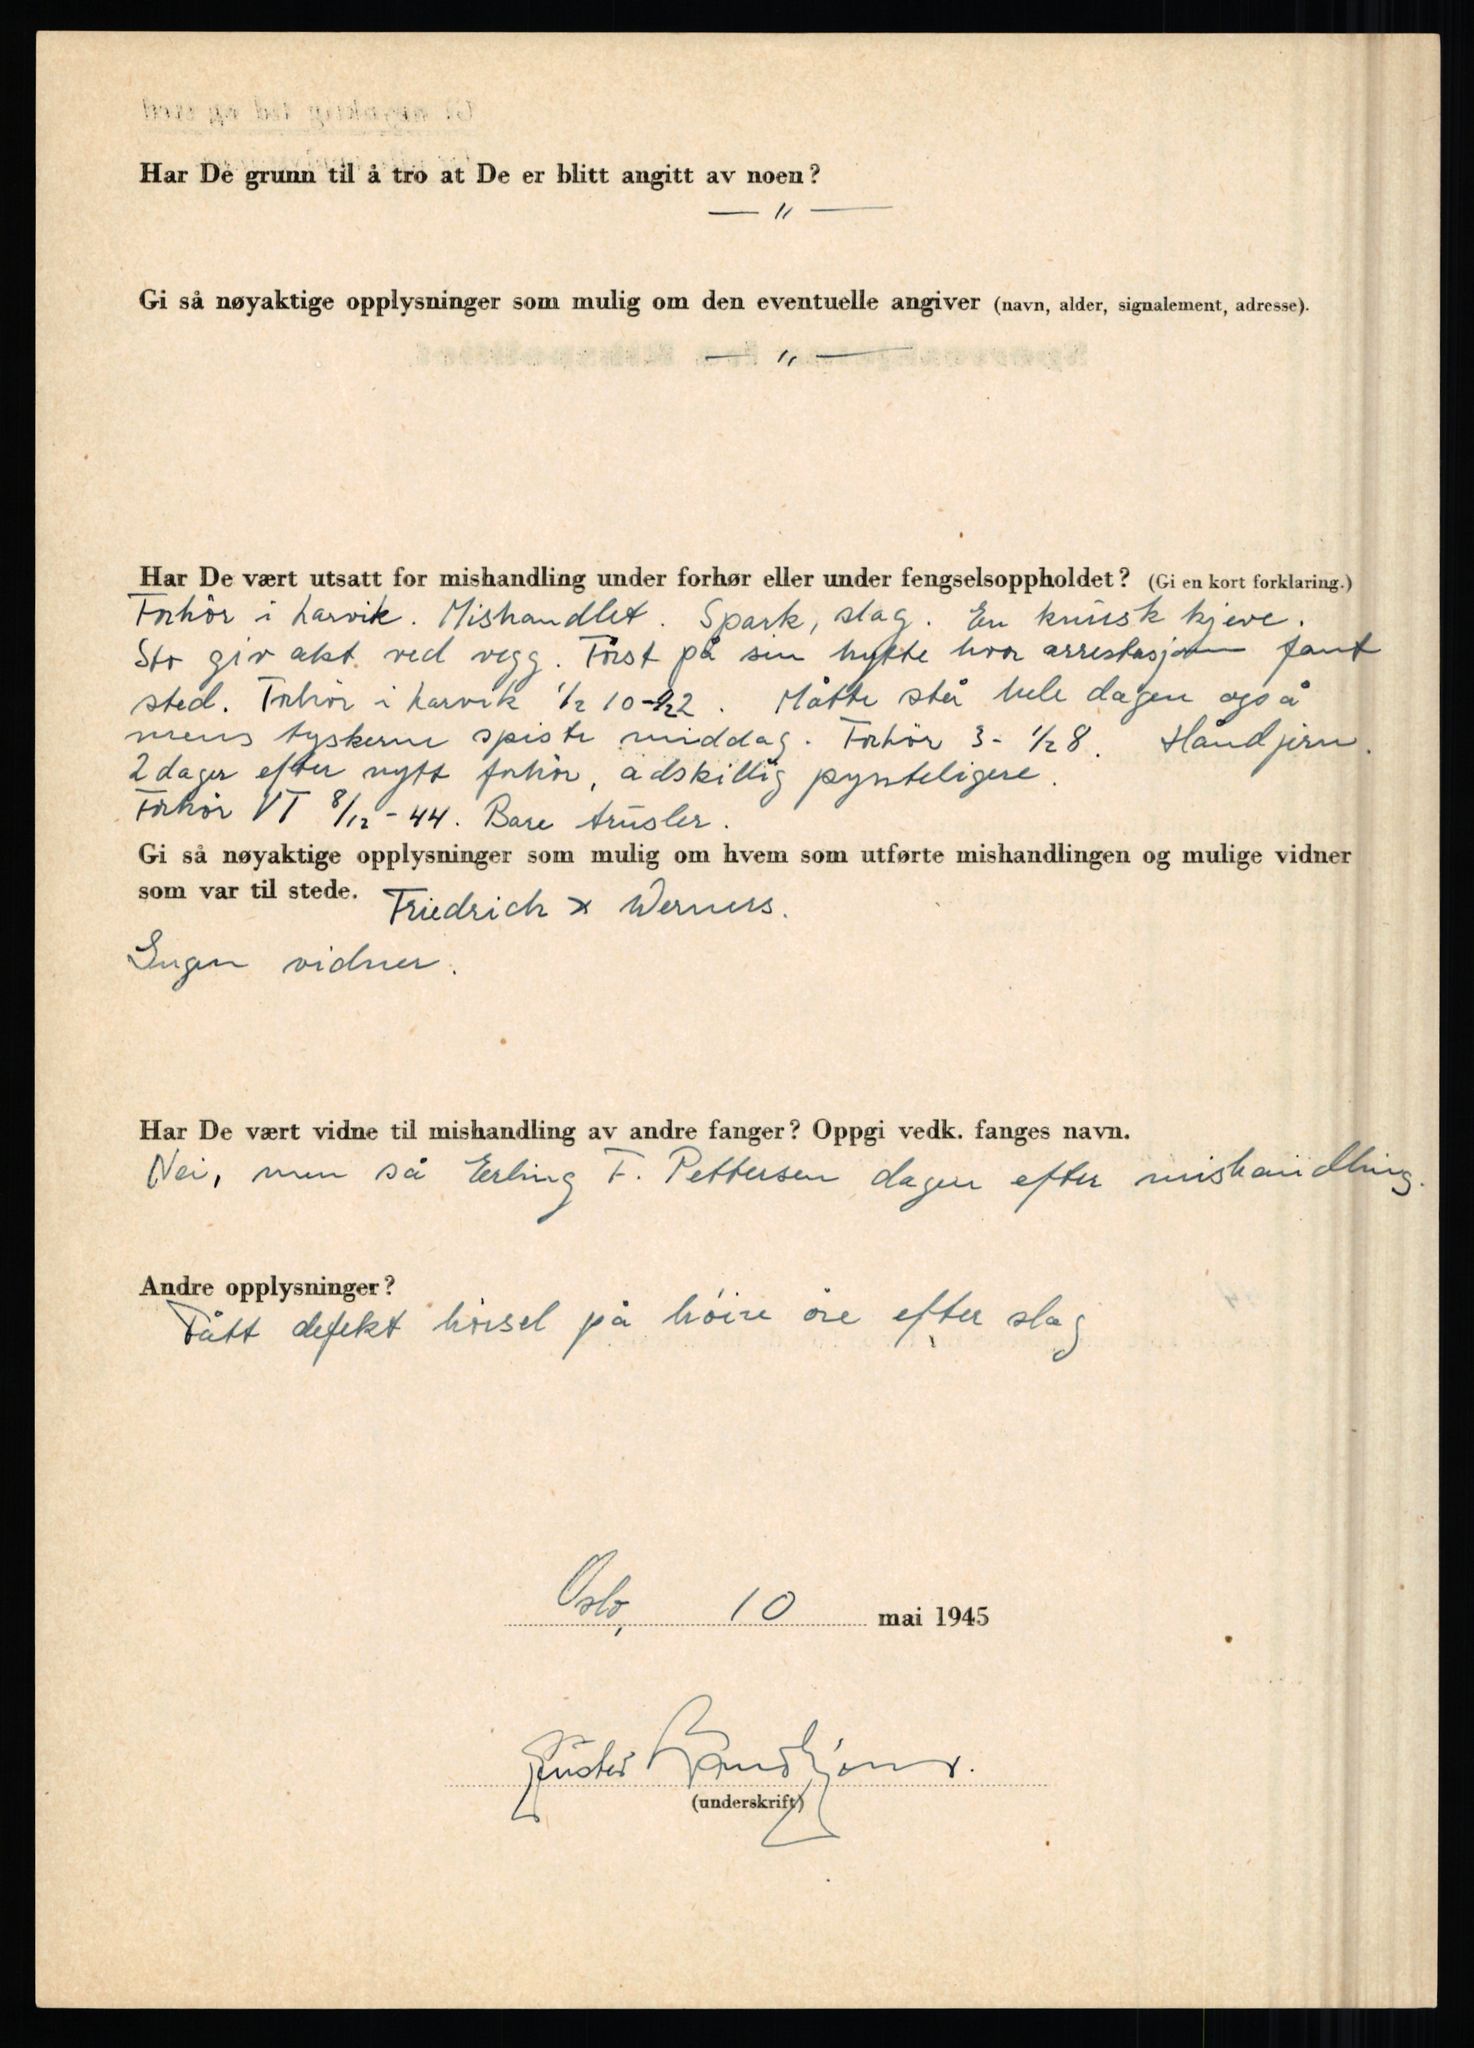 Har De grunn til å tro at De er blitt angitt av noen?
— " —
Gi så nøyaktige opplysninger som mulig om den eventuelle angiver (navn, alder, signalement, adresse).
— " —
Har De vært utsatt for mishandling under forhør eller under fengselsoppholdet? (Gi en kort forklaring.)
Forhör i Larvik. Mishandlet. Spark, slag. En knust kjeve.
Sto giv akt ved vegg. Först på sin hytte hvor arrestasjonen fant
sted. Forhör i Larvik ½ 10-22. Måtte stå hele dagen også
mens tyskerne spiste middag. Forhör 3- ½ 8. Håndjern.
2 dager efter nytt forhör, adskillig pynteligere.
Forhör VT 8/12-44. Bare trusler.
Gi så nøyaktige opplysninger som mulig om hvem som utførte mishandlingen og mulige vidner
som var til stede. Friedrich x Werners.
Ingen vidner.
Har De vært vidne til mishandling av andre fanger? Oppgi vedk. fanges navn.
Nei, men så Erling F. Pettersen dagen efter mishandling.
Andre opplysninger?
Fått defekt hörsel på höire öre efter slag
Oslo, 10 mai 1945
(underskrift)